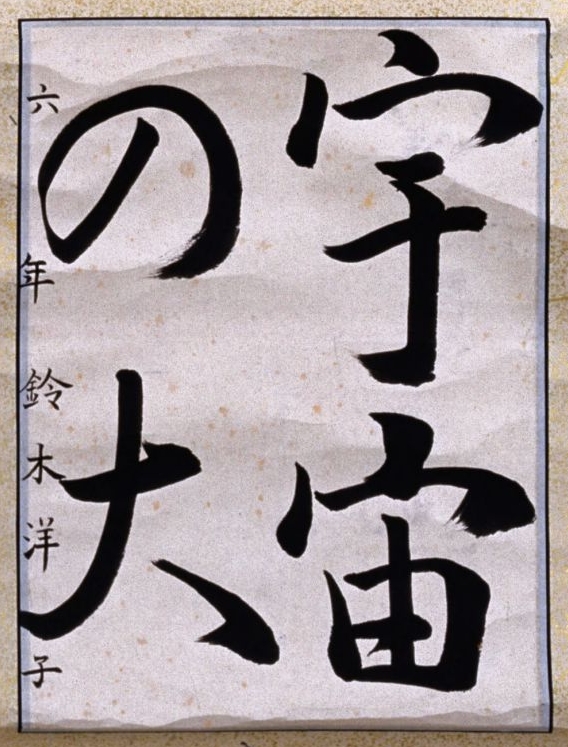 宇宙
の大
六年 鈴木洋子